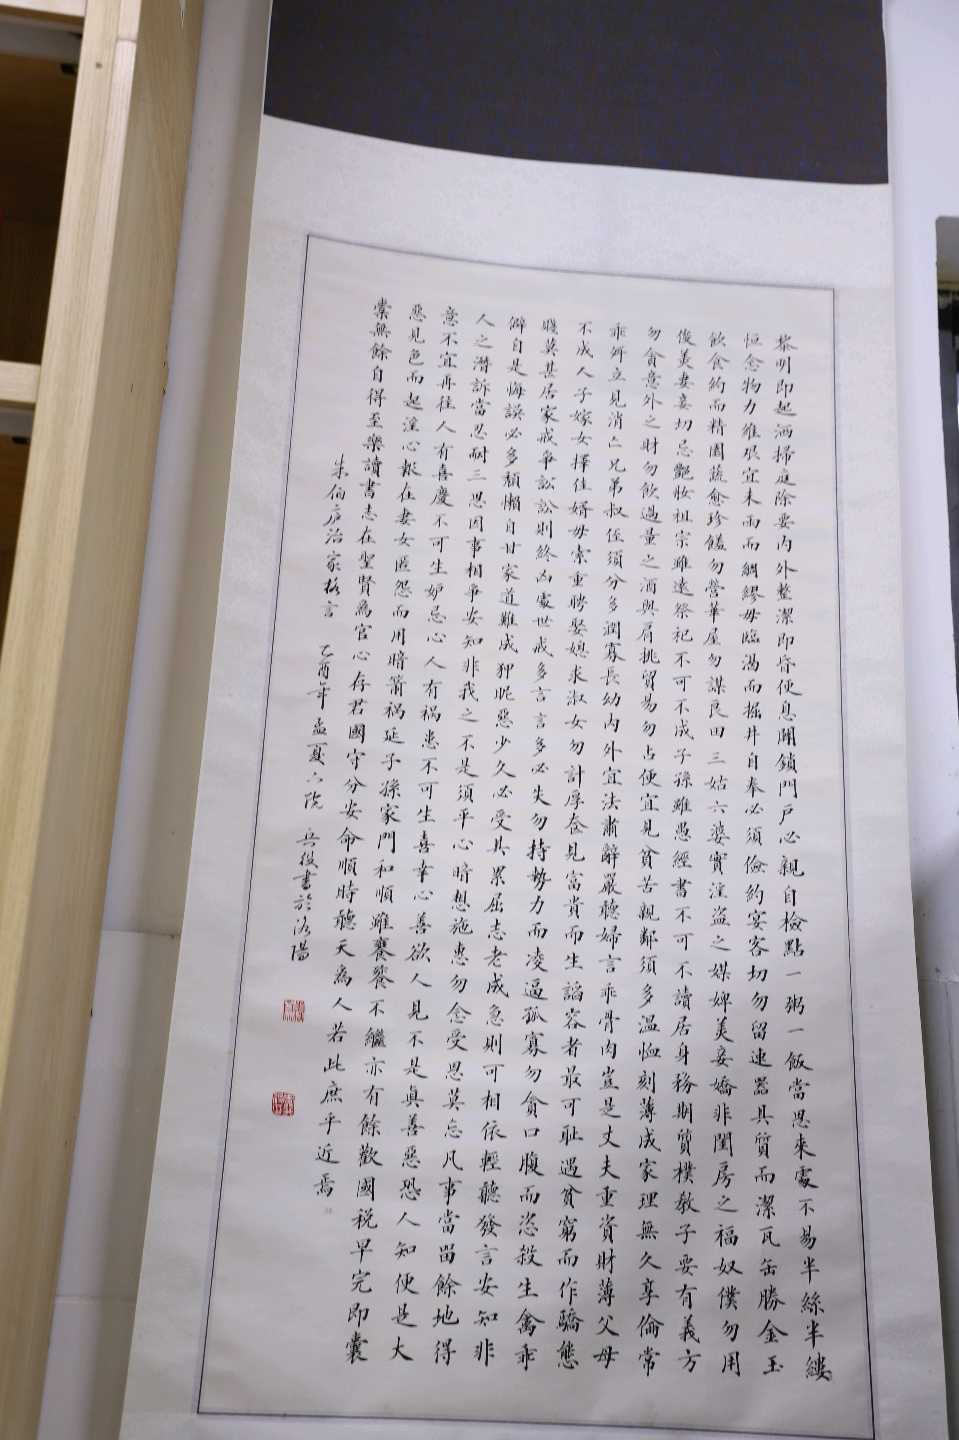 黎明即起洒掃庭除要內外整潔即昏便息關鎖門戶必親自檢點一粥一飯當思來處不易半絲半縷
恒念物力維艱宜未雨而綢繆毋臨渴而掘井自奉必須儉約宴客切勿留連器具質而潔瓦缶勝金玉
飲食約而精園蔬愈珍饈勿營華屋勿謀良田三姑六婆實淫盜之媒婢美妾嬌非閨房之福奴僕勿用
俊美妻妾切忌艷妝祖宗雖遠祭祀不可不成子孫雖愚經書不可不讀居身務期質樸教子要有義方
勿貪意外之財勿飲過量之酒與肩挑貿易勿占便宜見貧苦親鄰須多溫恤刻薄成家理無久享倫常
乖舛立見消亡兄弟叔侄須分多潤寡長幼內外宜法肅辭嚴聽婦言乖骨肉豈是丈夫重資財薄父母
不成人子嫁女擇佳婿毋索重聘娶媳求淑女勿計厚奩見富貴而生諂容者最可恥遇貧窮而作驕態
賤莫甚居家戒爭訟訟則終凶處世戒多言言多必失勿持勢力而凌逼孤寡勿貪口腹而恣殺生禽乖
僻自是悔誤必多頹懶自甘家道難成狎昵惡少久必受其累屈志老成急則可相依輕聽發言安知非
人之譖訴當忍耐三思因事相爭安知非我之不是須平心暗想施惠勿念受恩莫忘凡事當留餘地得
意不宜再往人有喜慶不可生妒忌心人有禍患不可生喜幸心善欲人見不是真善惡恐人知便是大
惡見色而起淫心報在妻女匿怨而用暗箭禍延子孫家門和順雖饔飧不繼亦有餘歡國稅早完即囊
橐無餘自得至樂讀書志在聖賢為官心存君國守分安命順時聽天為人若此庶乎近焉
朱伯庐治家格言 乙酉年孟夏六院 兵役書於洛陽